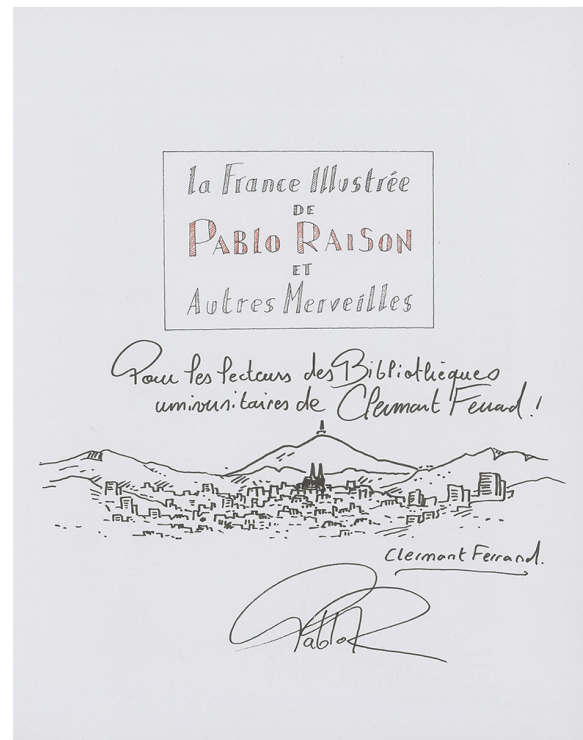 La France Illustrée
DE
PABLO RAISON
ET
Autres Merveilles
Pour les lecteurs des Bibliothèques
universitaires de Clermont Ferrand !
Clermont Ferrand.
Pablo R